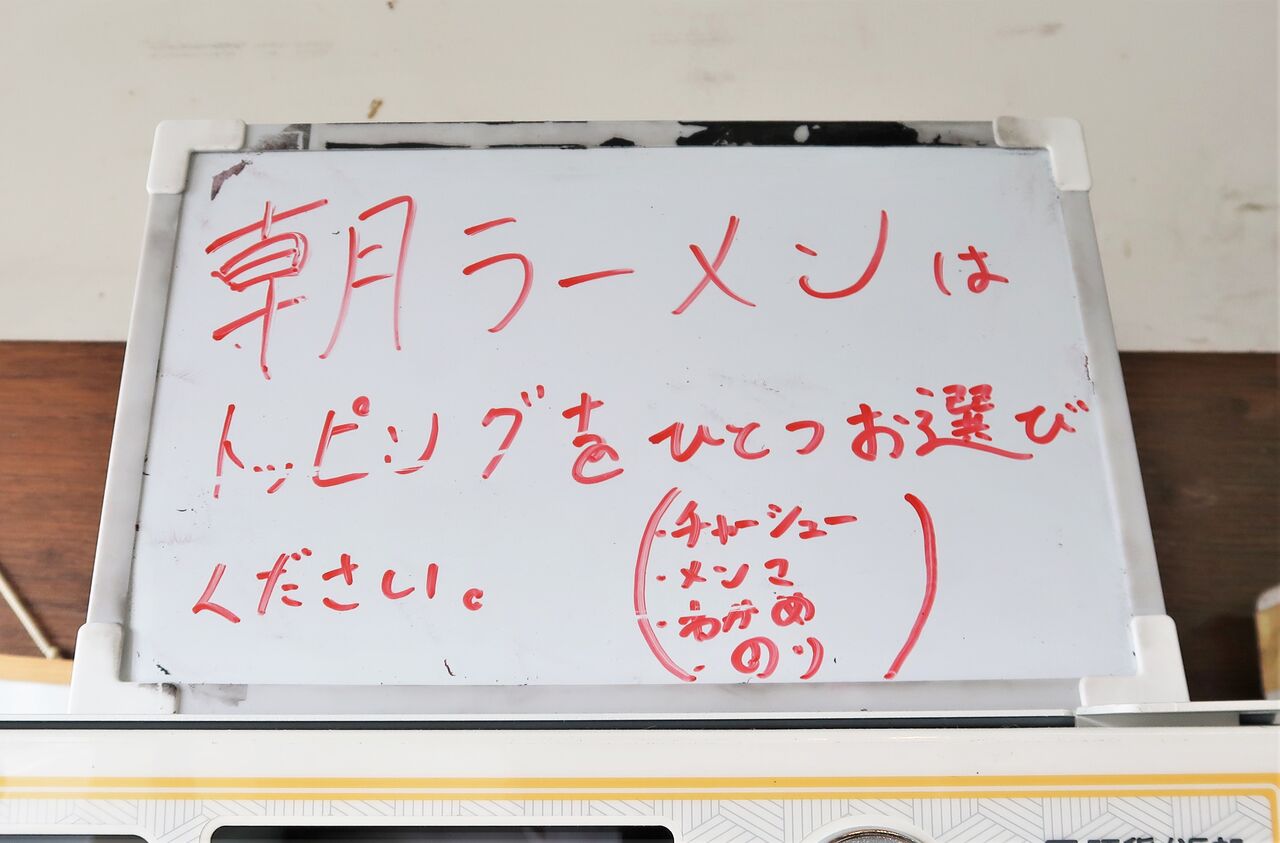 朝ラーメンは
トッピングをひとつお選び
ください。
(・チャーシュー
・メンマ
・わかめ
・のり)